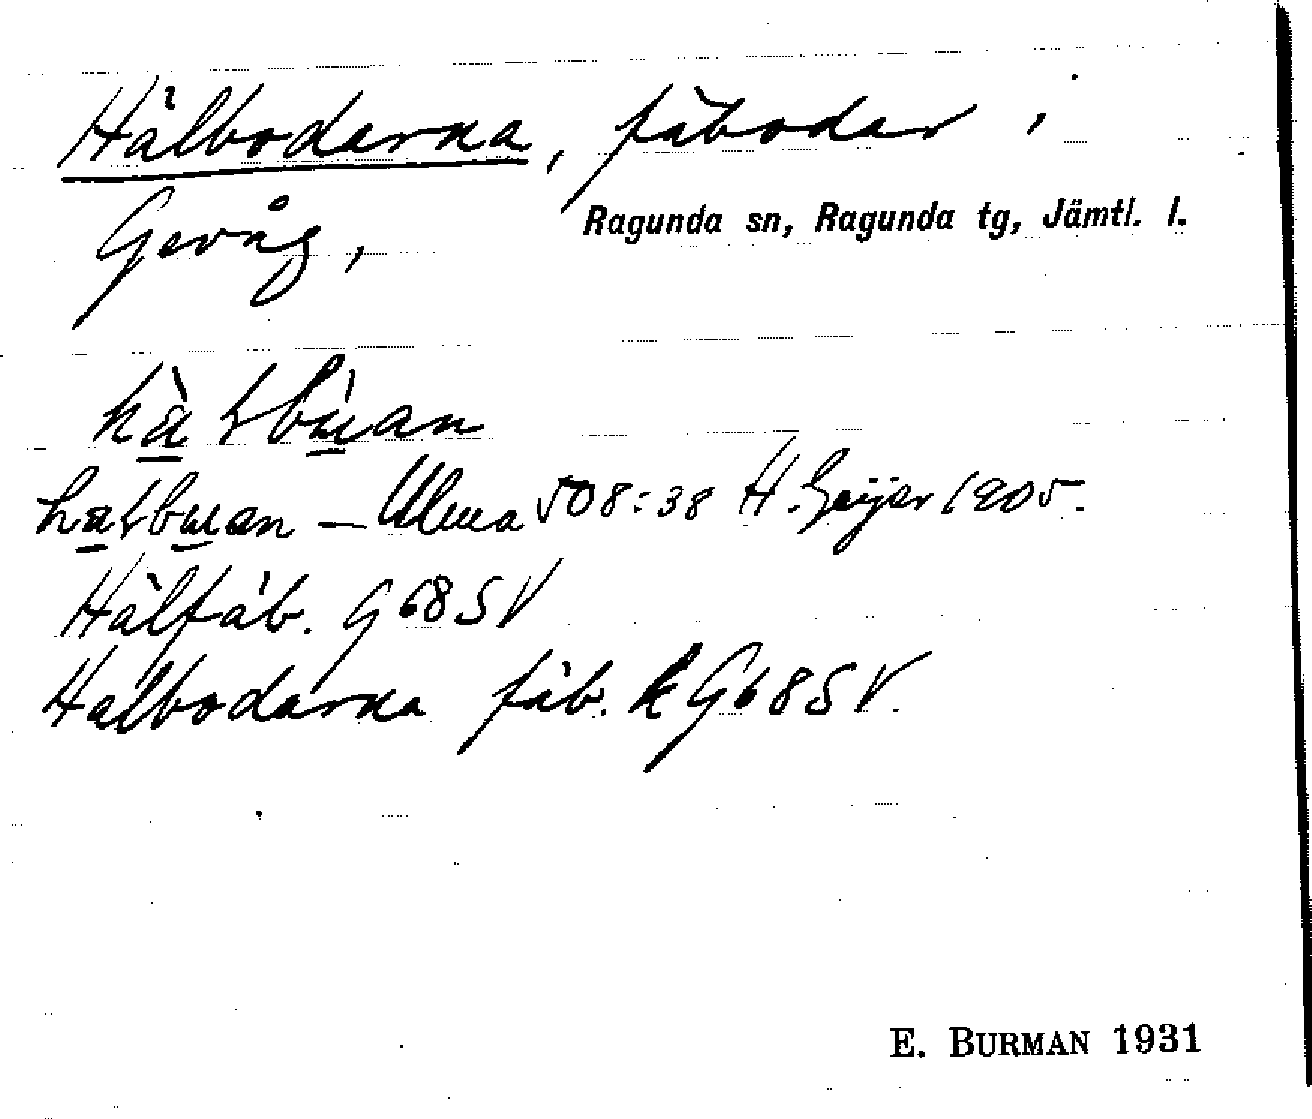 Hålbodarna, fäbodar i
Gevåg, Ragunda sn, Ragunda tg, Jämtl. l.
hàɫbùan
haɫbuan – Ulma 508:38 H. Geijer 1905.
Hålfäb. G68SV
Halbodarna fäb. k G68SV.
E. BURMAN 1931